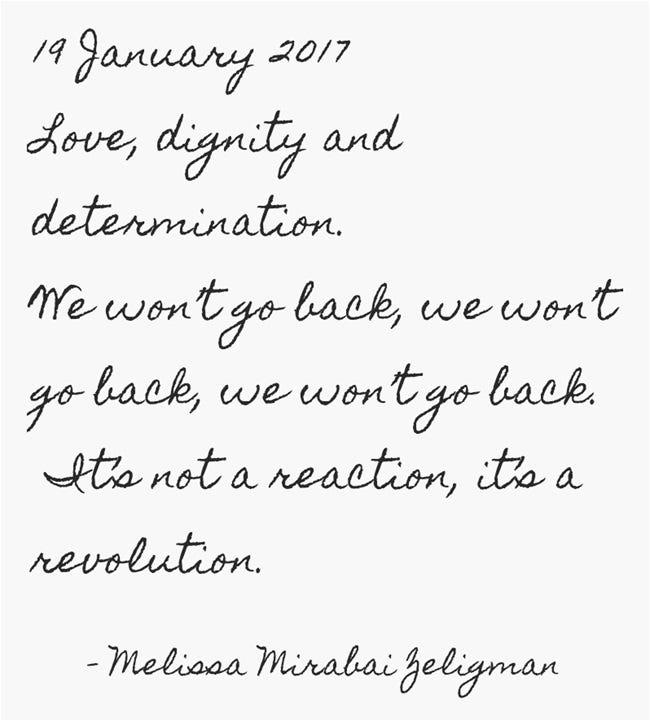 19 January 2017
Love, dignity and
determination.
We won't go back, we won't
go back, we won't go back.
It's not a reaction, it's a
revolution.
- Melissa Mirabai Zeligman